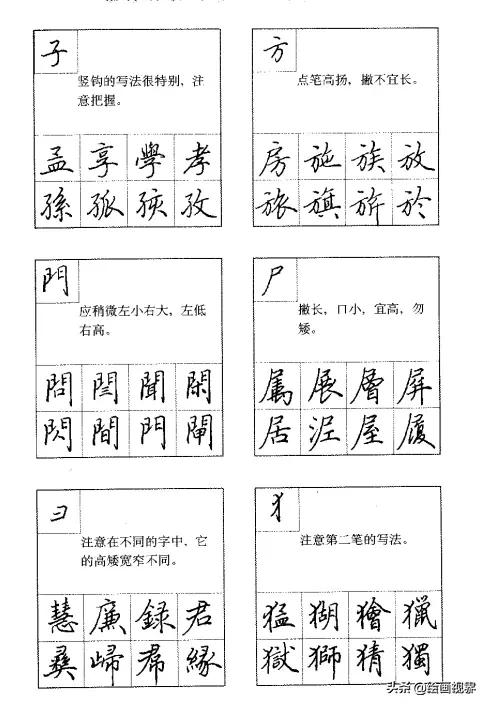 子
竖钩的写法很特别，注
意把握。
孟享學孝
孫孤孩孜
方
点笔高扬，撇不宜长。
房施族放
旅旗旂於
門
应稍微左小右大，左低
右高。
問誾聞閑
閃間門閘
尸
撇长，口小，宜高，勿
矮。
属展層屏
居泥屋履
彐
注意在不同的字中，它
的高矮宽窄不同。
慧廉録君
彝歸帚緣
犭
注意第二笔的写法。
猛猢獪獵
獄獅猜獨
头条@绘画视界